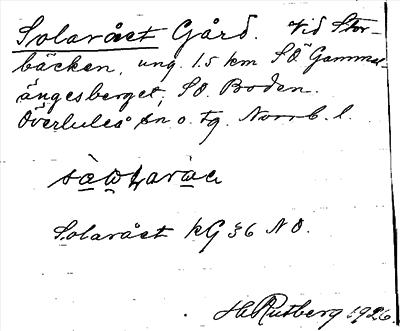 Solaråset Gård. Vid Stor-
bäcken, ung. 1.5 km SÖ Gammel-
ängesberget, SO Boden.
Överluleå sn o. tg. Norrb. l.
Solaråset kG 36 NO.
H. Rutberg 1926.